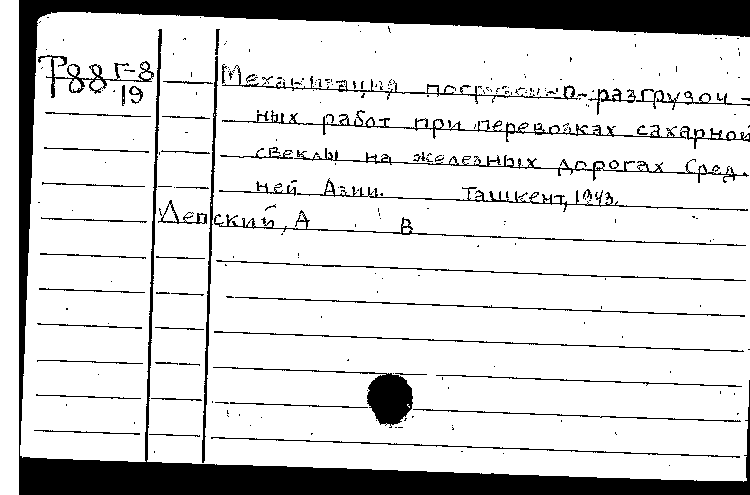 Т88 Г-8
19
Механизация погрузочно-разгрузоч-
ных работ при перевозках сахарной
свеклы на железных дорогах Сред-
ней Азии. Ташкент, 1943.
Лепский, А В